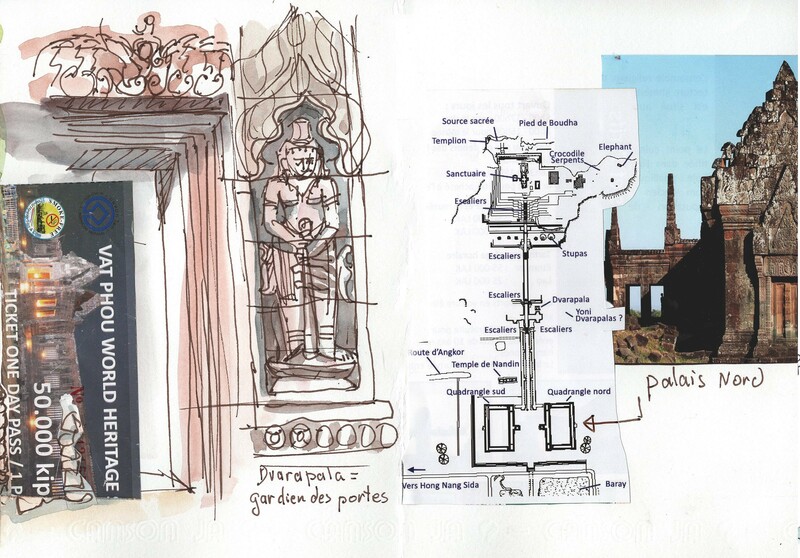 VAT PHOU WORLD HERITAGE
50.000 kip
TICKET ONE DAY PASS / 1 P
Dvarapala =
gardien des portes
Source sacrée
Pied de Boudha
Templion
Crocodile
Elephant
Serpents
Sanctuaire
Escaliers
Stupas
Escaliers
Escaliers
Dvarapala
Yoni
Dvarapalas ?
Escaliers
Escaliers
Route d'Angkor
Temple de Nandin
Quadrangle sud
Quadrangle nord
Vers Hong Nang Sida
Baray
palais Nord